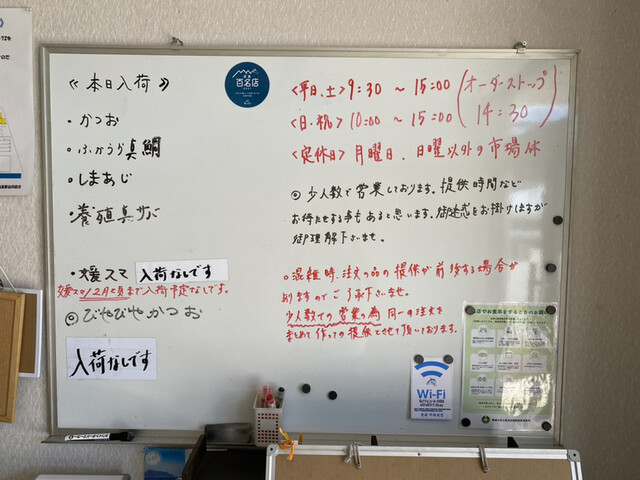 《本日入荷》
・かつお
・ふかうら真鯛
・しまあじ
・養殖真サバ
・媛スマ 入荷なしです
媛スマ12月頃まで入荷予定なしです。
◎びやびやかつお
入荷なしです
百名店
2021
<平日、土> 9:30 ～ 15:00 (オーダーストップ
<日・祝> 10:00 ～ 15:00 14:30)
<定休日> 月曜日、日曜以外の市場休
◎少人数で営業しております。提供時間など
お待たせする事もあると思います。御迷惑をお掛けしますが
御理解下さいませ。
○混雑時、注文の品の提供が前後する場合が
ありますのでご了承下さいませ。
少人数での営業の為 同一の注文を
まとめて作っての提供とさせて頂いております。
Wi-Fi